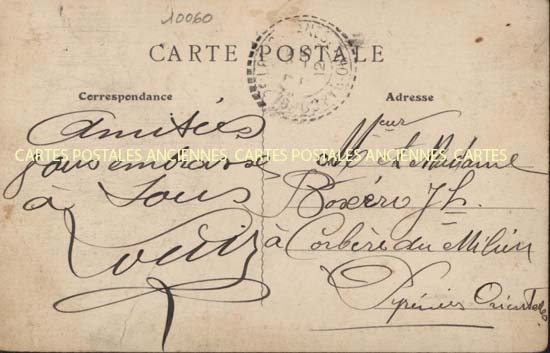 10060
CARTE POSTALE
Correspondance
Adresse
Amitiés
vous embrasse
à Tous
Louis
Mr et Madame
Boxéro Jh.
à Corbère du Milieu
Pyrénées Orientales
CARTES POSTALES ANCIENNES. CARTES POSTALES ANCIENNES. CARTES POSTALES ANCIENNES.